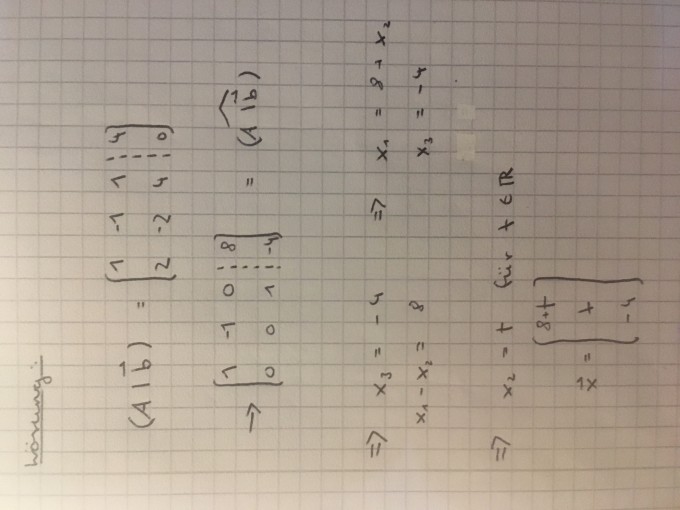 Lösung:
(A | b⃗) = [1 -1 1 ¦ 4]
[2 -2 4 ¦ 0]
→ [1 -1 0 ¦ 8] = (A | b⃗)^
[0 0 1 ¦ -4]
=> x₃ = -4 => x₁ = 8 + x₂
x₁ - x₂ = 8 x₃ = -4
=> x₂ = t für t ∈ ℝ
x⃗ = [8+t]
[t]
[-4]